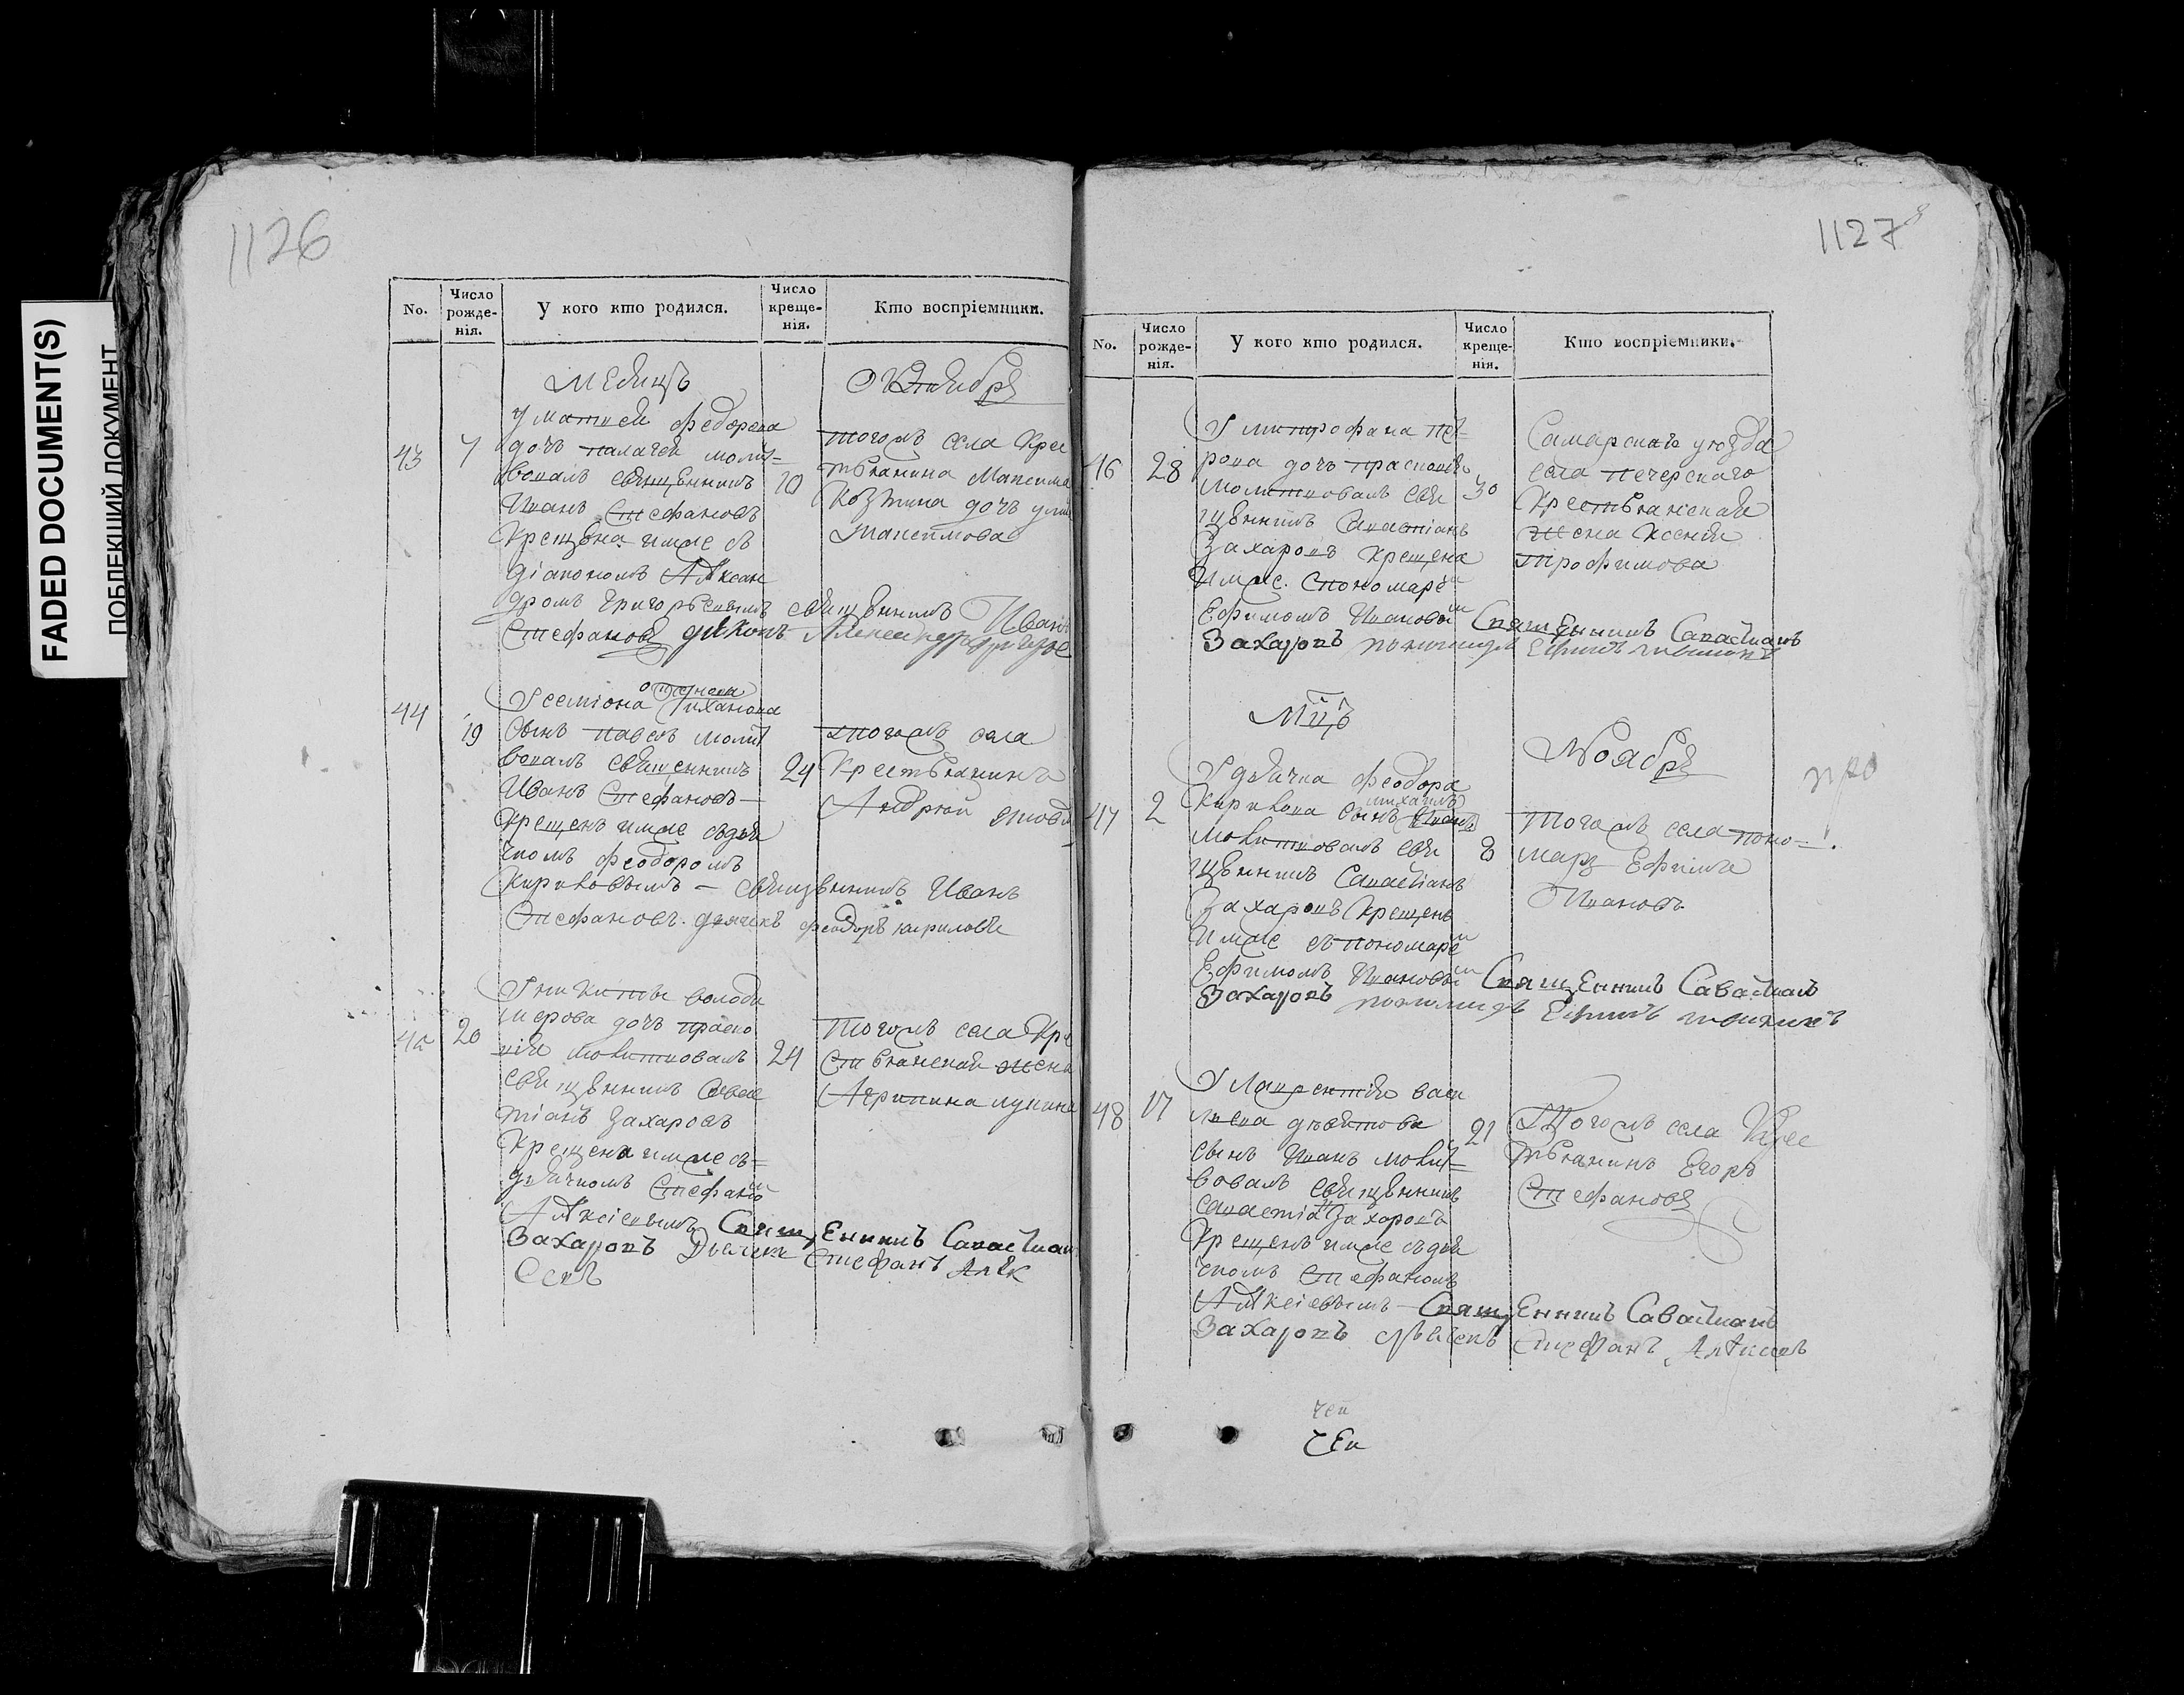 FADED DOCUMENT(S)
ПОБЛЕКШИЙ ДОКУМЕНТ
1126
No.
Число рожде-нія.
У кого кто родился.
Число креще-нія.
Кто воспріемники.
Мѣсяцъ
Октября
43
7
10
У матвея федорова
дочь палагея молит=
вовалъ священникъ
Иванъ Стефановъ
Крещена имже съ
діакономъ Алѣксан
дромъ григорьевымъ
тогожъ села Крес
тьянина Максима
Козмина дочь
максимова
священникъ Иванъ
Стефановъ діяконъ Александръ
44
19
24
У семіона Тиханова
сынъ павелъ молит
вовалъ священникъ
Иванъ Стефановъ
Крещенъ имже съдья
чкомъ Феодоромъ
Кириловымъ
тогожъ села
Крестьянинъ
Андрей
священникъ Иванъ
Стефановъ. дьячекъ феодоръ кириловъ
45
20
24
У никиты володи
мерова дочь праско
вія молитвовалъ
священникъ Савас
тіанъ Захаровъ
Крещена имже съ=
дьячкомъ Стефаном
Алѣксіевымъ
тогожъ села Кре
стьянская жена
Агрипина лукина
Священникъ Савастиан
Захаровъ Дьячек Стефанъ Алѣк
сеевъ
1127
No.
Число рожде-нія.
У кого кто родился.
Число креще-нія.
Кто воспріемники.
46
28
30
У митрофана пет=
рова дочь прасковія
молитвовалъ свя
щенникъ Савастіанъ
Захаровъ крещена
имже. спономарем
Ефимомъ Ивановым
Самарскаго уюзда
села печерскаго
Крестьянская
жена Ксения
трофимова
Священникъ Савастианъ
Захаровъ пономарь Ефимъ ивановъ
Мцъ
Ноября
47
2
8
У дьячка феодора
Кирилова сынъ михаилъ
молитвовалъ свя
щенникъ Савастіанъ
Захаровъ Крещенъ
имже съ пономарем
Ефимомъ Ивановым
тогожъ села поно=
марь Ефимъ
Ивановъ
Священникъ Савастианъ
Захаровъ пономарь Ефимъ ивановъ
48
17
21
У Лаврентія васи
льева
сынъ Иванъ молит=
вовалъ священникъ
савастіан Захаровъ
Крещенъ имже съдья
чкомъ Стефаномъ
Алѣксіевымъ
тогожъ села Крес
тьянинъ Егоръ
Стефановъ
Священникъ Савастианъ
Захаровъ дьячекъ Стефанъ Алѣксеевъ